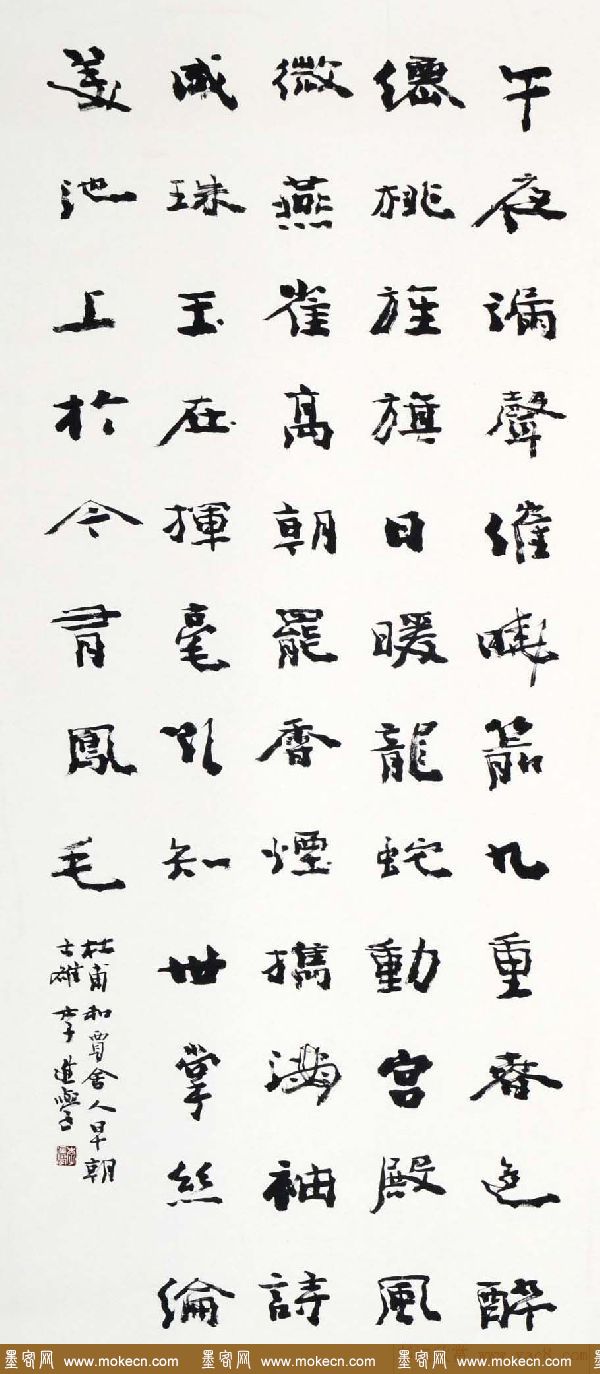 午夜漏聲催曉箭九重春色醉
僊桃旌旗日暖龍蛇動宮殿風
微燕雀高朝罷香煙攜滿袖詩
成珠玉在揮毫欲知世掌絲綸
美池上於今有鳳毛
杜甫和賈舍人早朝
李進學
墨客网 www.mokecn.com 墨客网 www.mokecn.com 墨客网 www.mokecn.com